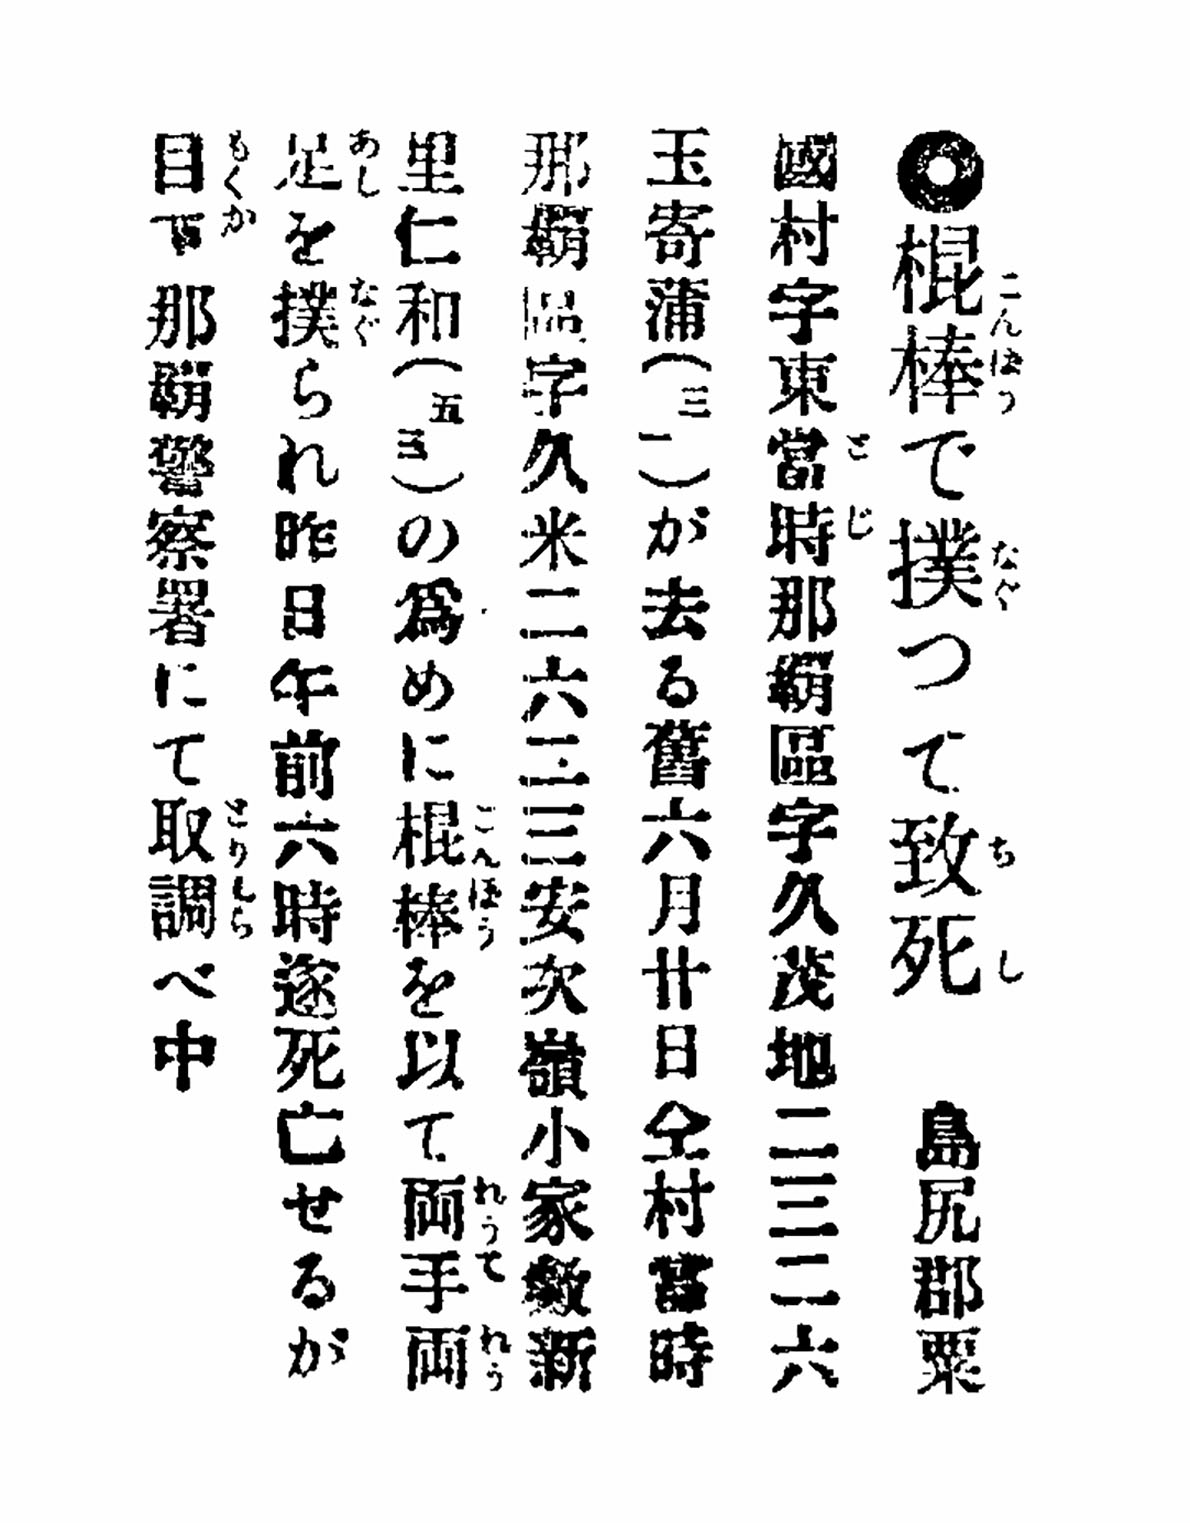 ◎棍棒で撲つて致死　島尻郡粟
國村字東當時那覇區字久茂地二三二六
玉寄蒲(三一)が去る舊六月廿日仝村當時
那覇區字久米二六二三安次嶺小家敷新
里仁和(五三)の爲めに棍棒を以て両手両
足を撲られ昨日午前六時遂死亡せるが
目下那覇警察署にて取調べ中